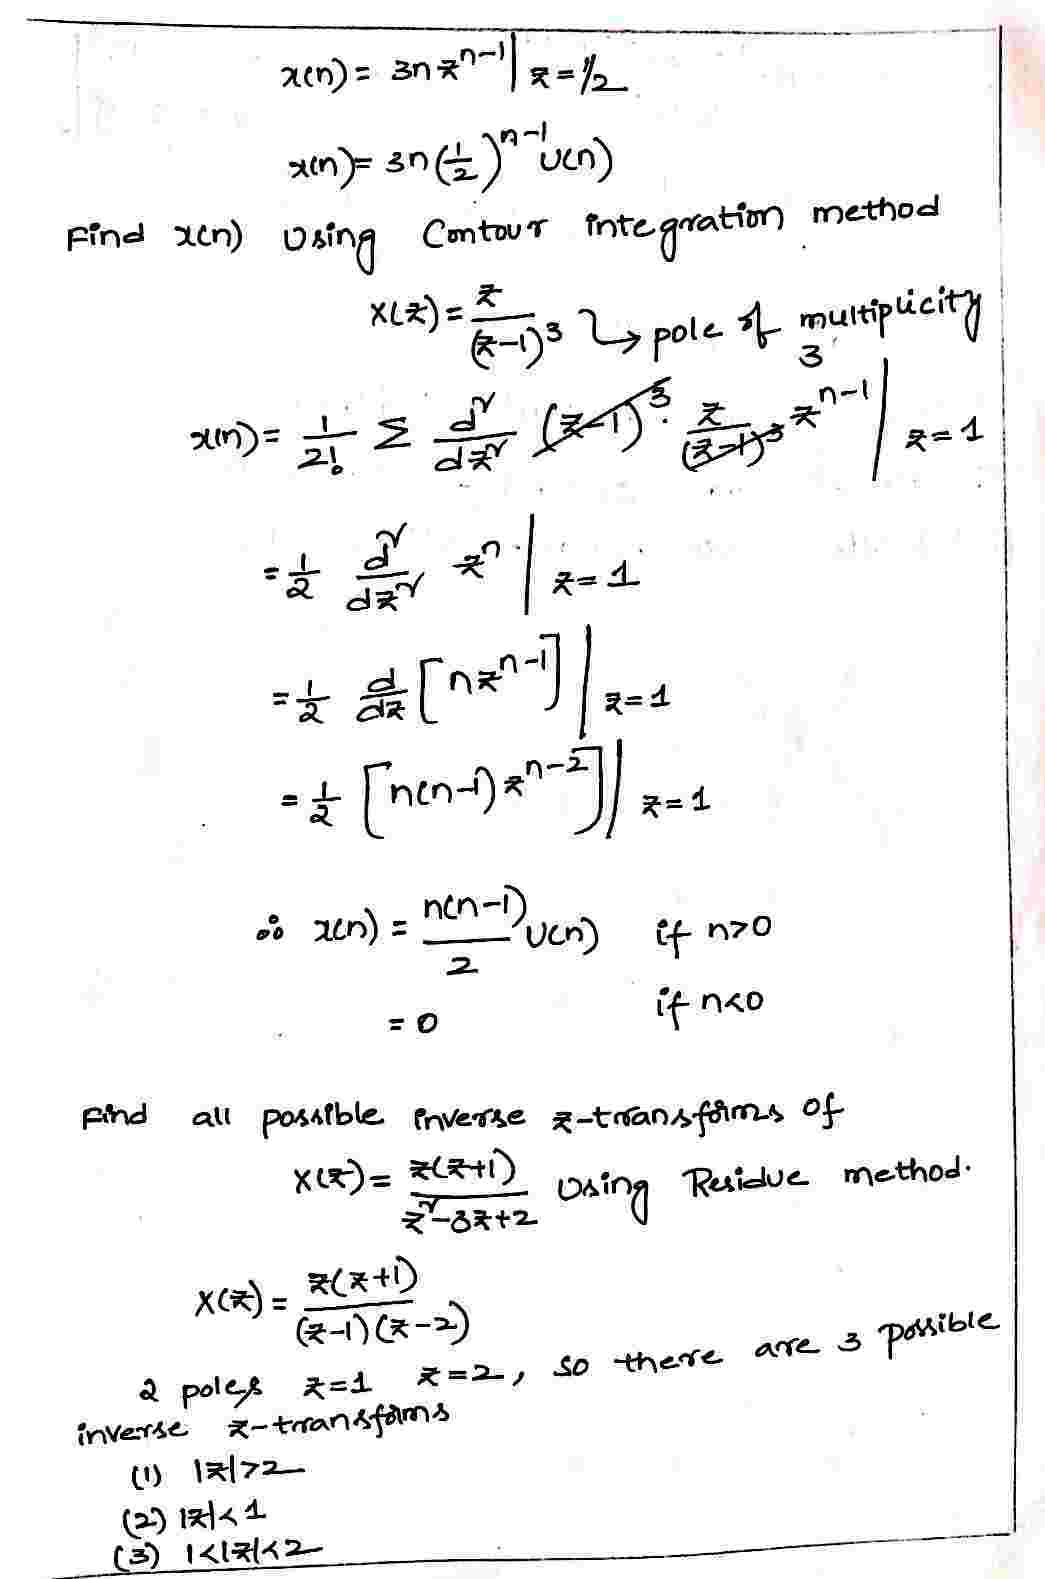 x(n) = 3n z^{n-1} | z = 1/2
x(n) = 3n (1/2)^{n-1} u(n)
Find x(n) Using Contour integration method
X(z) = z/(z-1)^3 ↳ pole of multiplicity 3
x(n) = 1/2! Σ d²/dz² (z-1)^3 . z/(z-1)^3 z^{n-1} | z = 1
= 1/2 d²/dz² z^n | z = 1
= 1/2 d/dz [n z^{n-1}] | z = 1
= 1/2 [n(n-1) z^{n-2}] | z = 1
∴ x(n) = n(n-1)/2 u(n) if n>0
= 0 if n<0
Find all possible inverse z-transforms of
X(z) = z(z+1)/z²-3z+2 Using Residue method.
X(z) = z(z+1)/(z-1)(z-2)
2 poles z=1 z=2, so there are 3 possible
inverse z-transforms
(1) |z|>2
(2) |z|<1
(3) 1<|z|<2